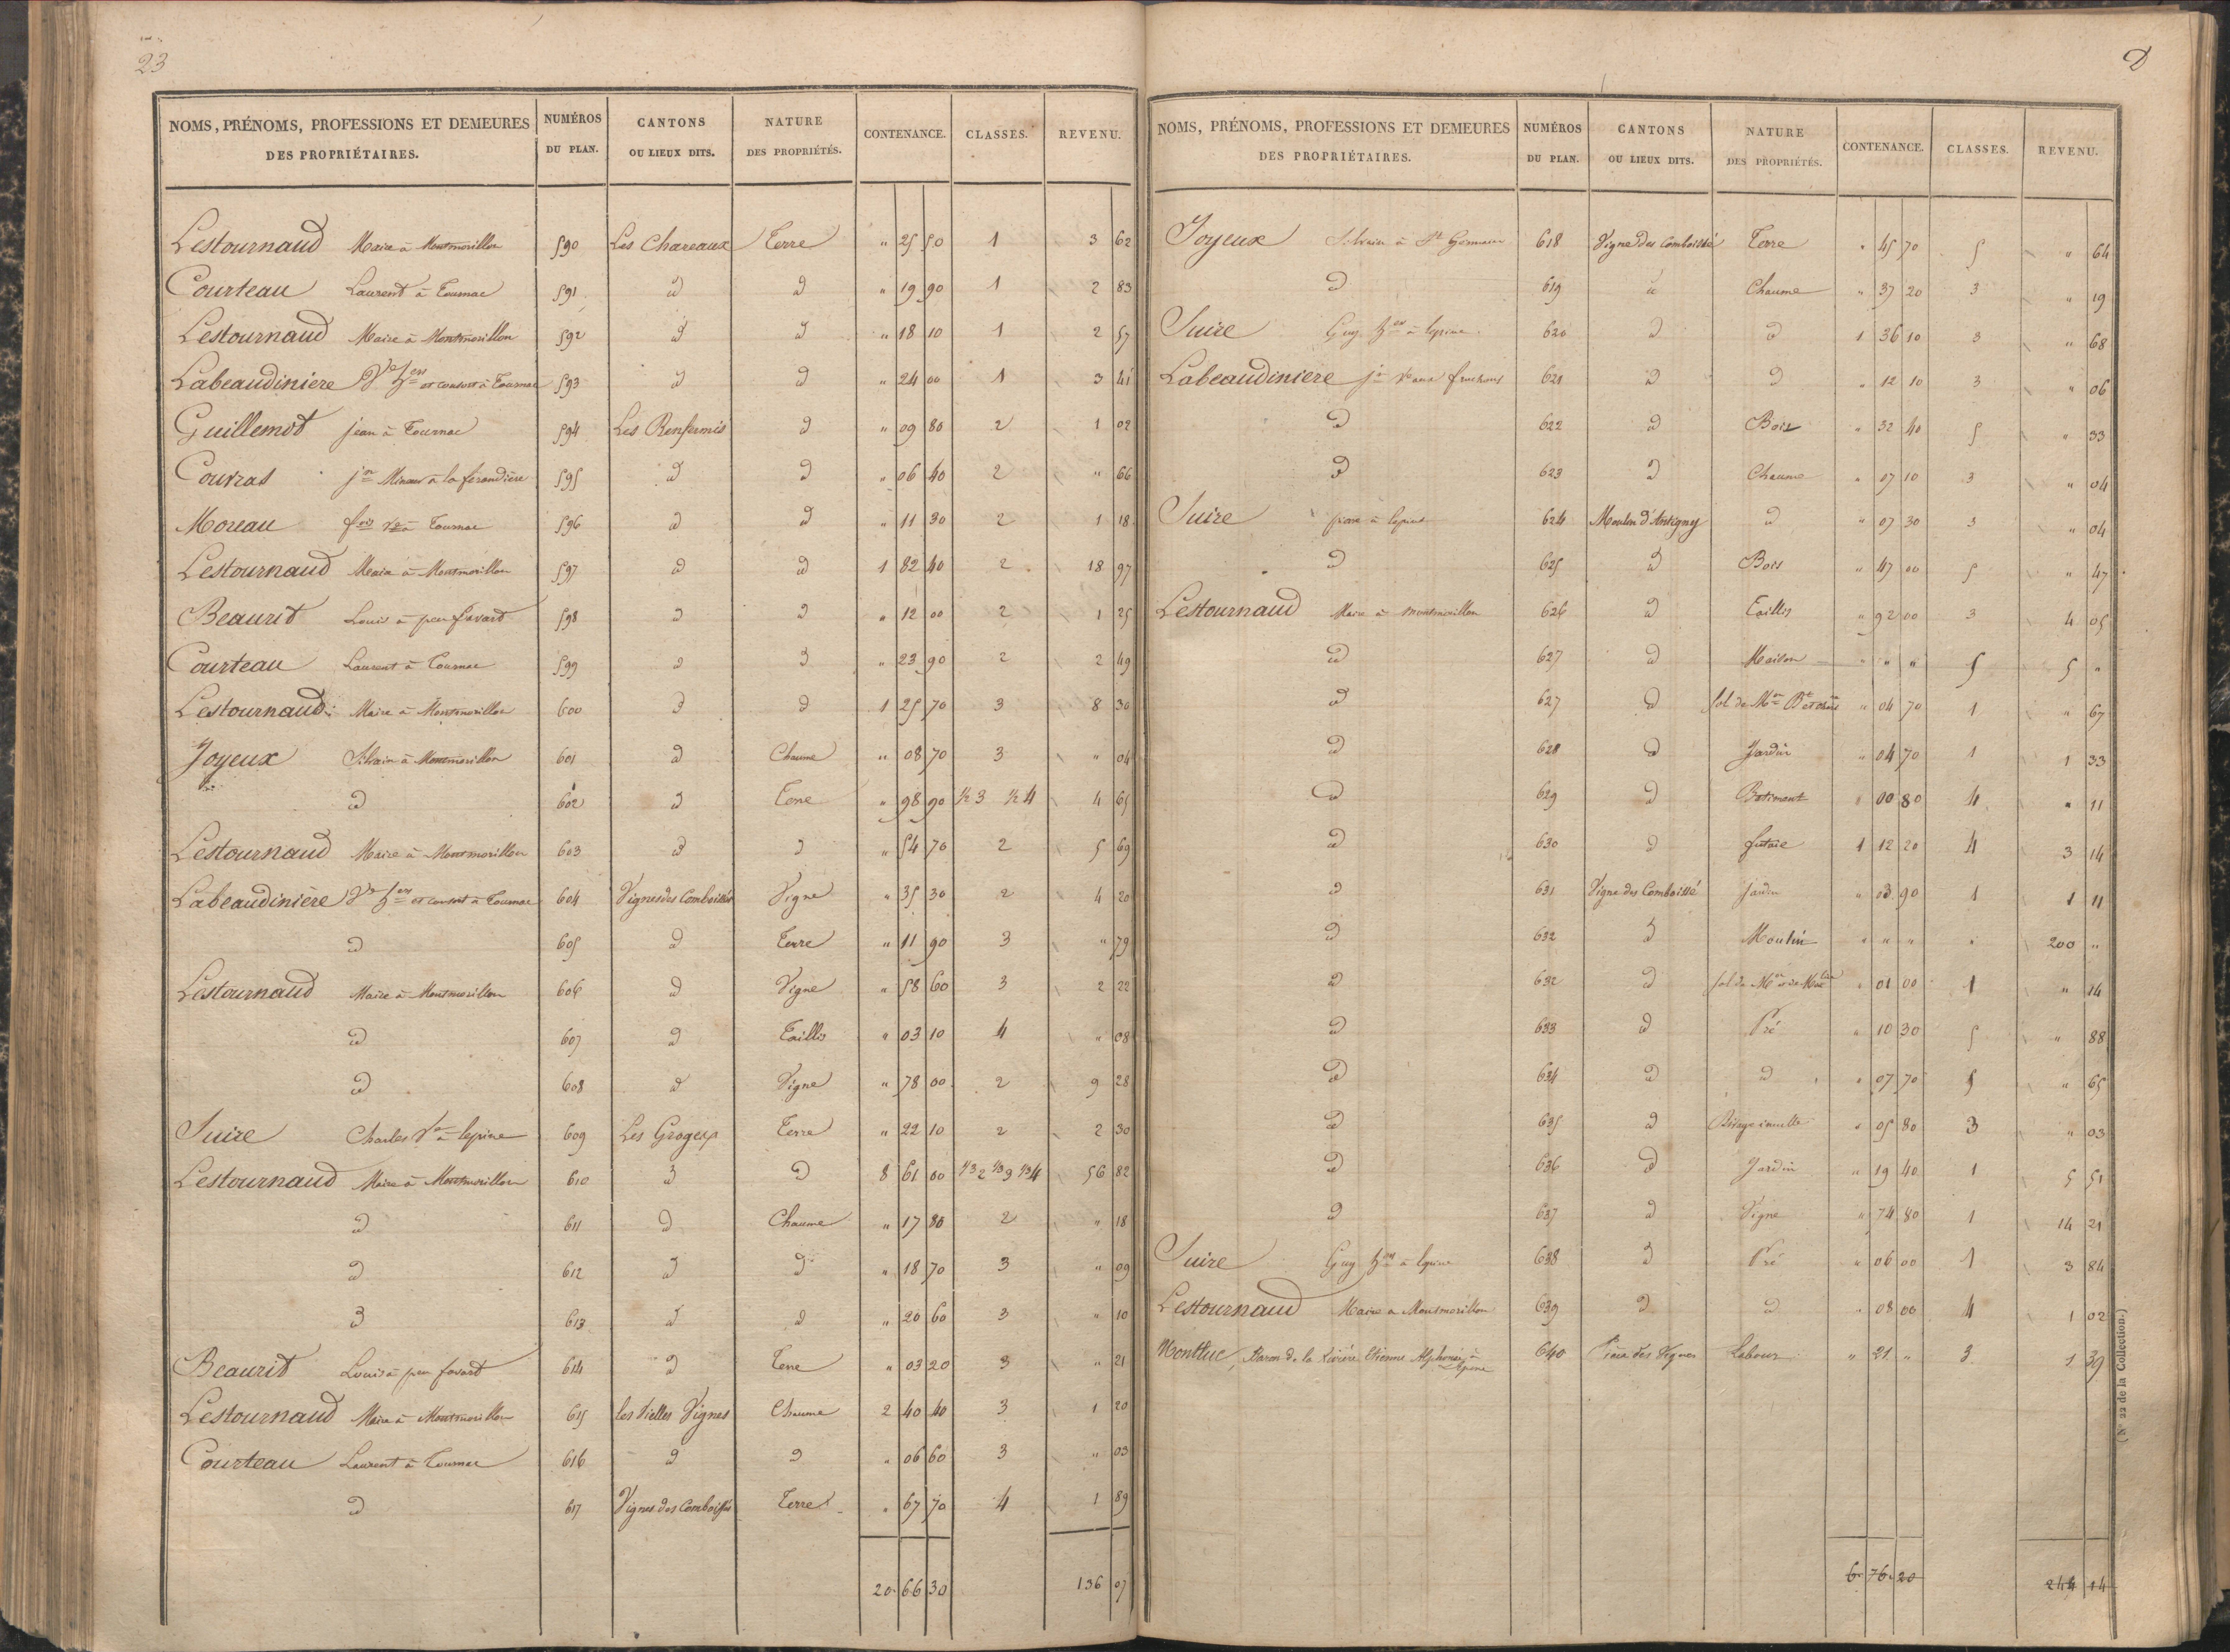 23
NOMS, PRÉNOMS, PROFESSIONS ET DEMEURES DES PROPRIÉTAIRES. NUMÉROS DU PLAN. CANTONS OU LIEUX DITS. NATURE DES PROPRIÉTÉS. CONTENANCE. CLASSES. REVENU.
Lestournaud Maire à Montmorillon 590 Les Chareaux Terre " 25 50 1 3 62
Courteau Laurent à Tournac 591 d d " 19 90 1 2 83
Lestournaud Maire à Montmorillon 592 d d " 18 10 1 2 57
Labeaudiniere et consort à Tournac 593 d d " 24 00 1 3 41
Guillemot jean à Tournac 594 Les Renfermis d " 09 80 2 1 02
Courras à la ferandière 595 d d " 06 40 2 " 66
Moreau fois à Tournac 596 d d " 11 30 2 1 18
Lestournaud Maire à Montmorillon 597 d d 1 82 40 2 18 97
Beaurit Louis à peu favard 598 d d " 12 00 2 1 25
Courteau Laurent à Tournac 599 d d " 23 90 2 2 49
Lestournaud Maire à Montmorillon 600 d d 1 25 70 3 8 30
Joyeux Silvain à Montmorillon 601 d Chaume " 08 70 3 " 04
d 602 d Terre " 98 90 ½ 3 ½ 4 4 65
Lestournaud Maire à Montmorillon 603 d d " 54 70 2 5 69
Labeaudinière et consort à Tournac 604 Vignes des Comboissés Vigne " 35 30 2 4 20
d 605 d Terre " 11 90 3 " 79
Lestournaud Maire à Montmorillon 606 d Vigne " 58 60 3 2 22
d 607 d Taillis " 03 10 4 " 08
d 608 d Vigne " 78 00 2 9 28
Suire Charles à lepine 609 Les Grogeas Terre " 22 10 2 2 30
Lestournaud Maire à Montmorillon 610 d d 8 61 00 1/3 2 1/3 3 1/3 4 56 82
d 611 d Chaume " 17 80 2 " 18
d 612 d d " 18 70 3 " 09
d 613 d d " 20 60 3 " 10
Beaurit Louis à peu favard 614 d Terre " 03 20 3 " 21
Lestournaud Maire à Montmorillon 615 les Vielles Vignes Chaume 2 40 40 3 1 20
Courteau Laurent à Tournac 616 d d " 06 60 3 " 03
d 617 Vignes des Comboissés Terre " 67 70 4 1 89
20 66 30 136 07
D
NOMS, PRÉNOMS, PROFESSIONS ET DEMEURES DES PROPRIÉTAIRES. NUMÉROS DU PLAN. CANTONS OU LIEUX DITS. NATURE DES PROPRIÉTÉS. CONTENANCE. CLASSES. REVENU.
Joyeux Silvain à St Germain 618 Vigne des Comboissé Terre " 45 70 5 " 64
d 619 d Chaume " 37 20 3 " 19
Suire Guy à lepine 620 d d 1 36 10 3 " 68
Labeaudiniere 621 d d " 12 10 3 " 06
d 622 d Bois " 32 40 5 " 33
d 623 d Chaume " 07 10 3 " 04
Suire à lepine 624 Moulin d'Antigny d " 07 30 3 " 04
d 625 d Bois " 47 00 5 " 47
Lestournaud Maire à montmorillon 626 d Taillis " 92 00 3 4 05
d 627 d Maison " " " 5 5 "
d 627 d Sol de Mon Bt et " 04 70 1 " 67
d 628 d Jardin " 04 70 1 1 33
d 629 d Batiment " 00 80 4 " 11
d 630 d futaie 1 12 20 4 3 14
d 631 Vigne des Comboissé Jardin " 03 90 1 1 11
d 632 d Moulin " " " " 200 "
d 632 d Sol de Mon " 01 00 1 " 14
d 633 d Pré " 10 30 5 " 88
d 634 d d " 07 70 5 " 65
d 635 d " 05 80 3 " 03
d 636 d Jardin " 19 40 1 5 51
d 637 d Vigne " 74 80 1 14 21
Suire Guy à lepine 638 d Pré " 06 00 1 3 84
Lestournaud Maire à Montmorillon 639 d d " 08 00 4 1 02
Montluc, Baron de la Rivière Etienne Alphonse à lepine 640 des Vignes Labour " 21 " 3 1 39
6 76 20 244 14
(N° 22 de la Collection.)